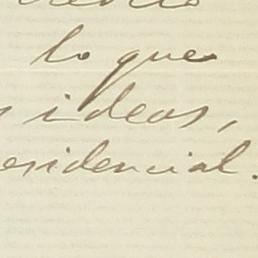 lo que
s ideas,
esidencial.